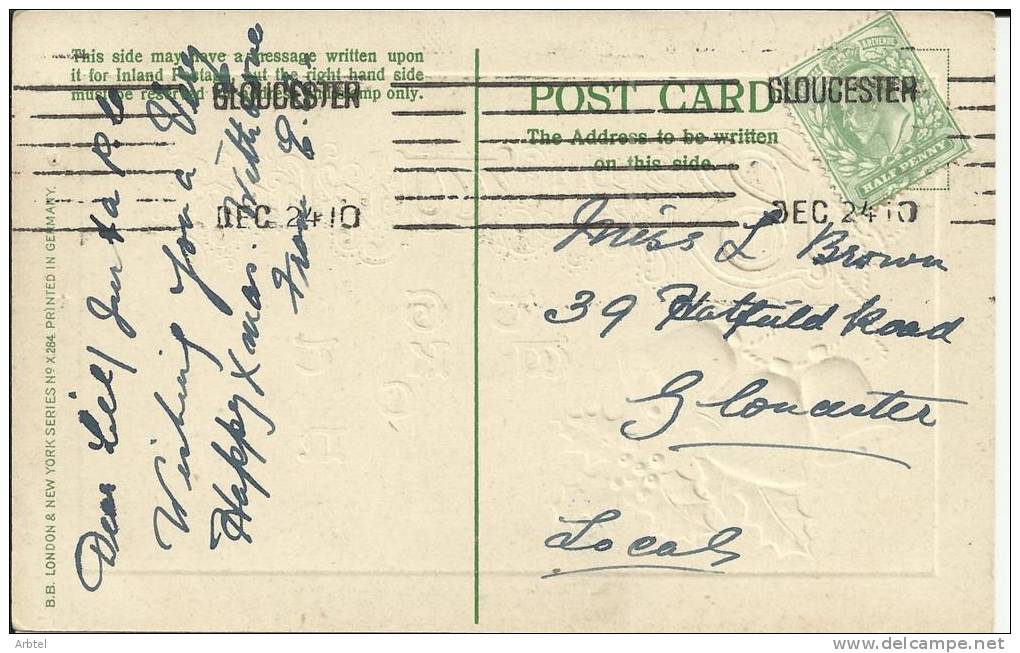 This side may have a message written upon
it for Inland Postage, but the right hand side
must be reserved for the Address and Stamp only.
POST CARD
The Address to be written
on this side.
GLOUCESTER
DEC 24 10
GLOUCESTER
DEC 24 10
HALF PENNY
Miss L Brown
39 Hatfield Road
Gloucester
Local
Dear Lil, Just a P.C
Wishing you a Very
Happy Xmas. With Love
from E.
B.B. LONDON & NEW YORK SERIES Nº X284 PRINTED IN GERMANY.
Arbtel
www.delcampe.net